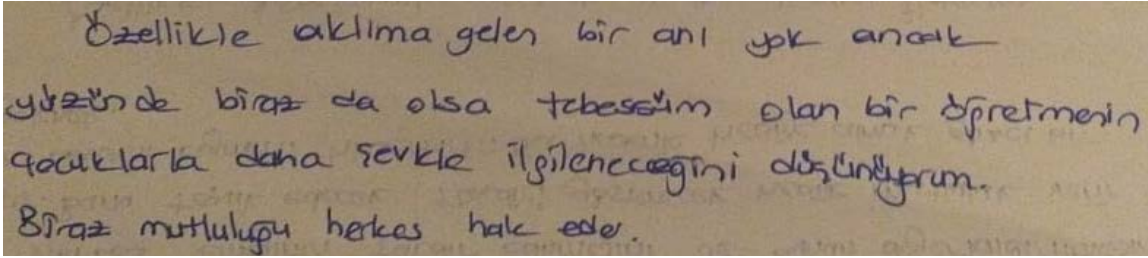 Özellikle aklıma gelen bir anı yok ancak
yüzünde biraz da olsa tebessüm olan bir öğretmenin
çocuklarla daha şevkle ilgileneceğini düşünüyorum.
Biraz mutluluğu herkes hak eder.